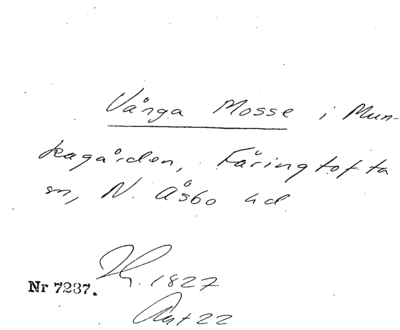 Vånga Mosse i Mun-
kagården, Färingtofta
sn, N. Åsbo hd
Nr 7237. 1827
22